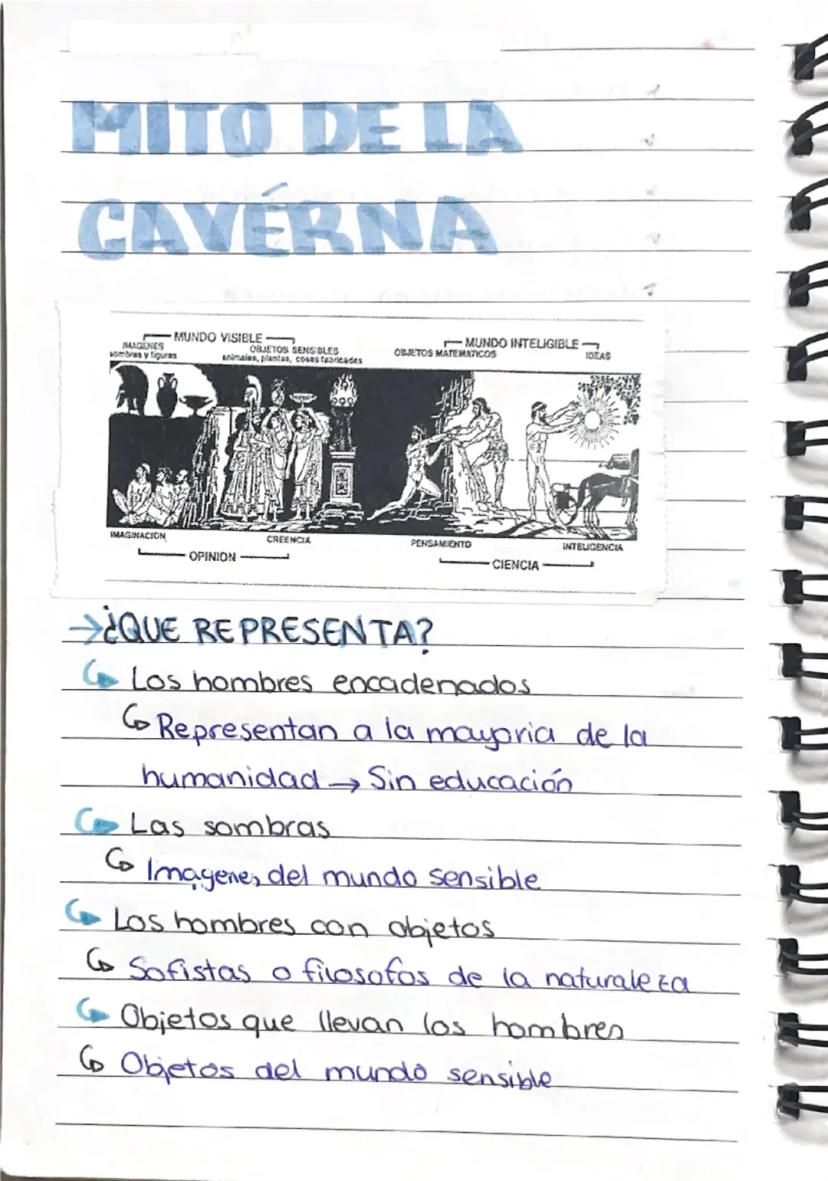 MITO DE LA
CAVÉRNA
MUNDO VISIBLE
MUNDO INTELIGIBLE
IMAGENES
sombras y figuras
OBJETOS SENSIBLES
animales, plantas, cosas fabricadas
OBJETOS MATEMATICOS
IDEAS
IMAGINACION
CREENCIA
PENSAMIENTO
INTELIGENCIA
OPINION
CIENCIA
→¿QUE REPRESENTA?
Los hombres encadenados
Representan a la mayoria de la
humanidad → Sin educación
Las sombras
Imagenes del mundo sensible
Los hombres con objetos
Sofistas o filosofos de la naturaleza
Objetos que llevan los hombres
Objetos del mundo sensible